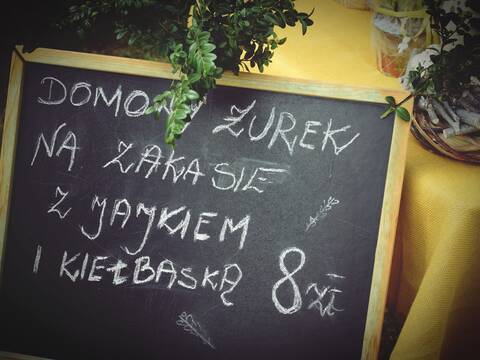 DOMOWY ŻUREK
NA ZAKASIE
Z JAJKIEM
I KIEŁBASKĄ 8 zł